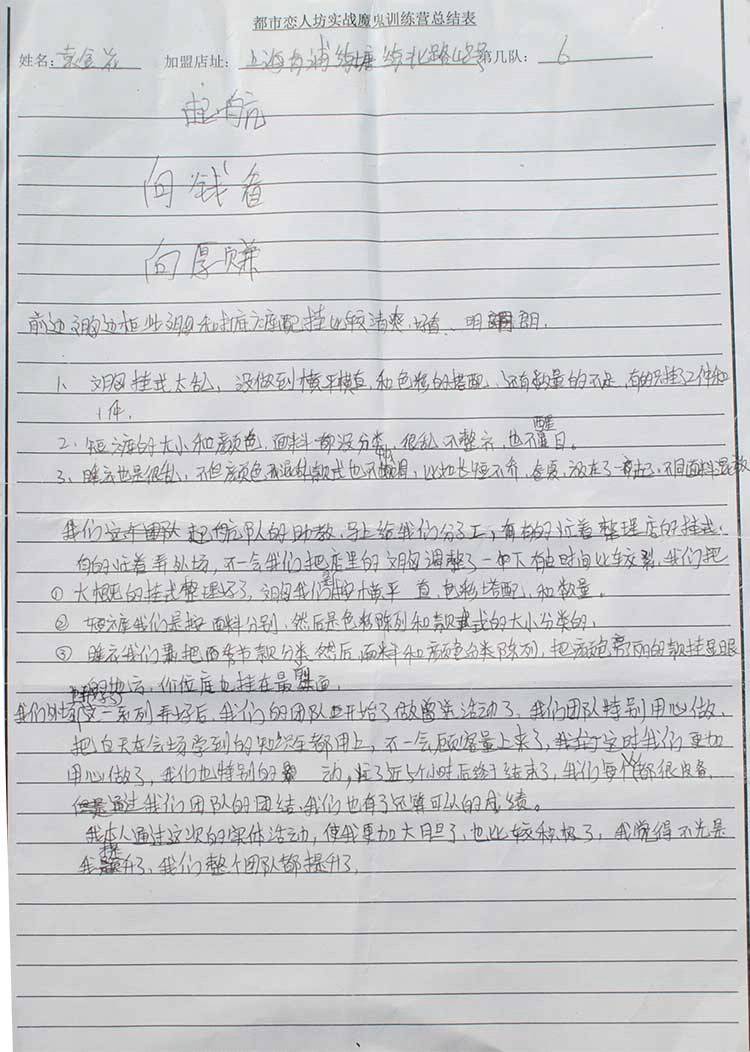 都市恋人坊实战魔鬼训练营总结表
姓名: 袁金花 加盟店址: 上海青浦练塘练北路48号 第几队: 6
起航
向钱看
向厚赚
前边文胸边柜此文胸和打底衣裤配挂比较清爽、好看、明朗.
1、文胸挂式太乱, 没做到横平横直和色彩的搭配, 还有数量的不足, 有的只挂了2件和
1件.
2、短裤的大小和颜色, 面料都没分类, 很乱不整齐, 也不醒目.
3、睡衣也是很乱, 不但颜色混乱款式也不, 长短不齐, 春夏放在了一起, 不同面料
我们这个团队起航队的助教, 马上给我们分了工, 有的忙着整理店的挂式,
有的忙着弄外场, 不一会我们把店里的文胸调整了一下由时间比较紧, 我们把
① 大概的挂式整理好了, 文胸我们横平直, 色彩搭配, 和数量。
② 短裤我们是把面料分别, 然后是色彩陈列和款式的大小分类的.
③ 睡衣我们把春节款分类然后, 面料和颜色分类陈列, 把颜色亮丽的款挂显眼
的地方, 价位底也挂在最面,
我们外场这一系列弄好后, 我们的团队开始了做活动了, 我们团队特别用心做,
把白天在会场学到的知识全都用上, 不一会顾客量上来了, 这时我们更加
用心做了, 我们也特别的动, 近5个小时后终于结束了, 我们每个都很疲备,
但是通过我们团队的团结, 我们也有了还算可以的成绩。
我本人通过这次的实体活动, 使我更加大胆了, 也比较积极了, 我觉得不光是
我提升了, 我们整个团队都提升了.